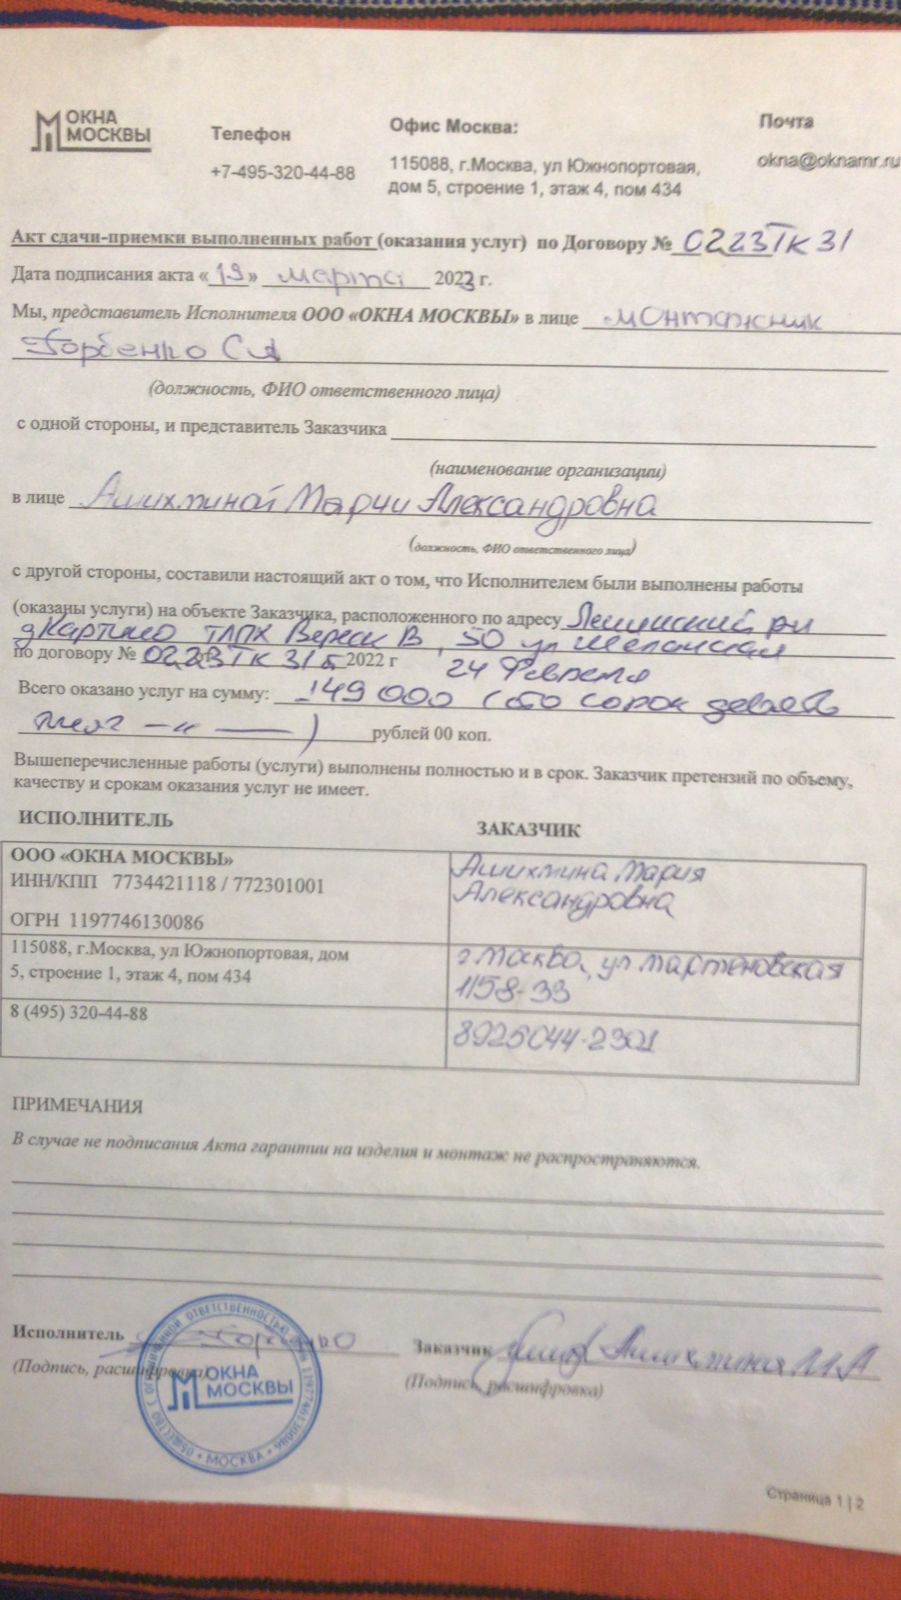 ОКНА
МОСКВЫ
Телефон
+7-495-320-44-88
Офис Москва:
115088, г.Москва, ул Южнопортовая,
дом 5, строение 1, этаж 4, пом 434
Почта
okna@oknamr.ru
Акт сдачи-приемки выполненных работ (оказания услуг) по Договору № 0223ТК31
Дата подписания акта «19» марта 2023 г.
Мы, представитель Исполнителя ООО «ОКНА МОСКВЫ» в лице монтажник
Горбенко С А
(должность, ФИО ответственного лица)
с одной стороны, и представитель Заказчика
(наименование организации)
в лице Ашихминой Марии Александровна
(должность, ФИО ответственного лица)
с другой стороны, составили настоящий акт о том, что Исполнителем были выполнены работы
(оказаны услуги) на объекте Заказчика, расположенного по адресу
д Картино ТЛПХ В, 50 ул
по договору № 0223ТК31 2022 г 24 Февраля
Всего оказано услуг на сумму: 149 000 (сто сорок девять
рублей 00 коп.
Вышеперечисленные работы (услуги) выполнены полностью и в срок. Заказчик претензий по объему,
качеству и срокам оказания услуг не имеет.
ИСПОЛНИТЕЛЬ
ЗАКАЗЧИК
ООО «ОКНА МОСКВЫ»
ИНН/КПП 7734421118 / 772301001
ОГРН 1197746130086
Ашихмина Мария
Александровна
115088, г.Москва, ул Южнопортовая, дом
5, строение 1, этаж 4, пом 434
г. Москва, ул Мартеновская
1158-33
8 (495) 320-44-88
8925044-2301
ПРИМЕЧАНИЯ
В случае не подписания Акта гарантии на изделия и монтаж не распространяются.
Исполнитель Горбенко
(Подпись, расшифровка)
Заказчик Ашихмина М А
(Подпись, расшифровка)
ОБЩЕСТВО С ОГРАНИЧЕННОЙ ОТВЕТСТВЕННОСТЬЮ 1197746130086 • МОСКВА •
ОКНА
МОСКВЫ
Страница 1 | 2